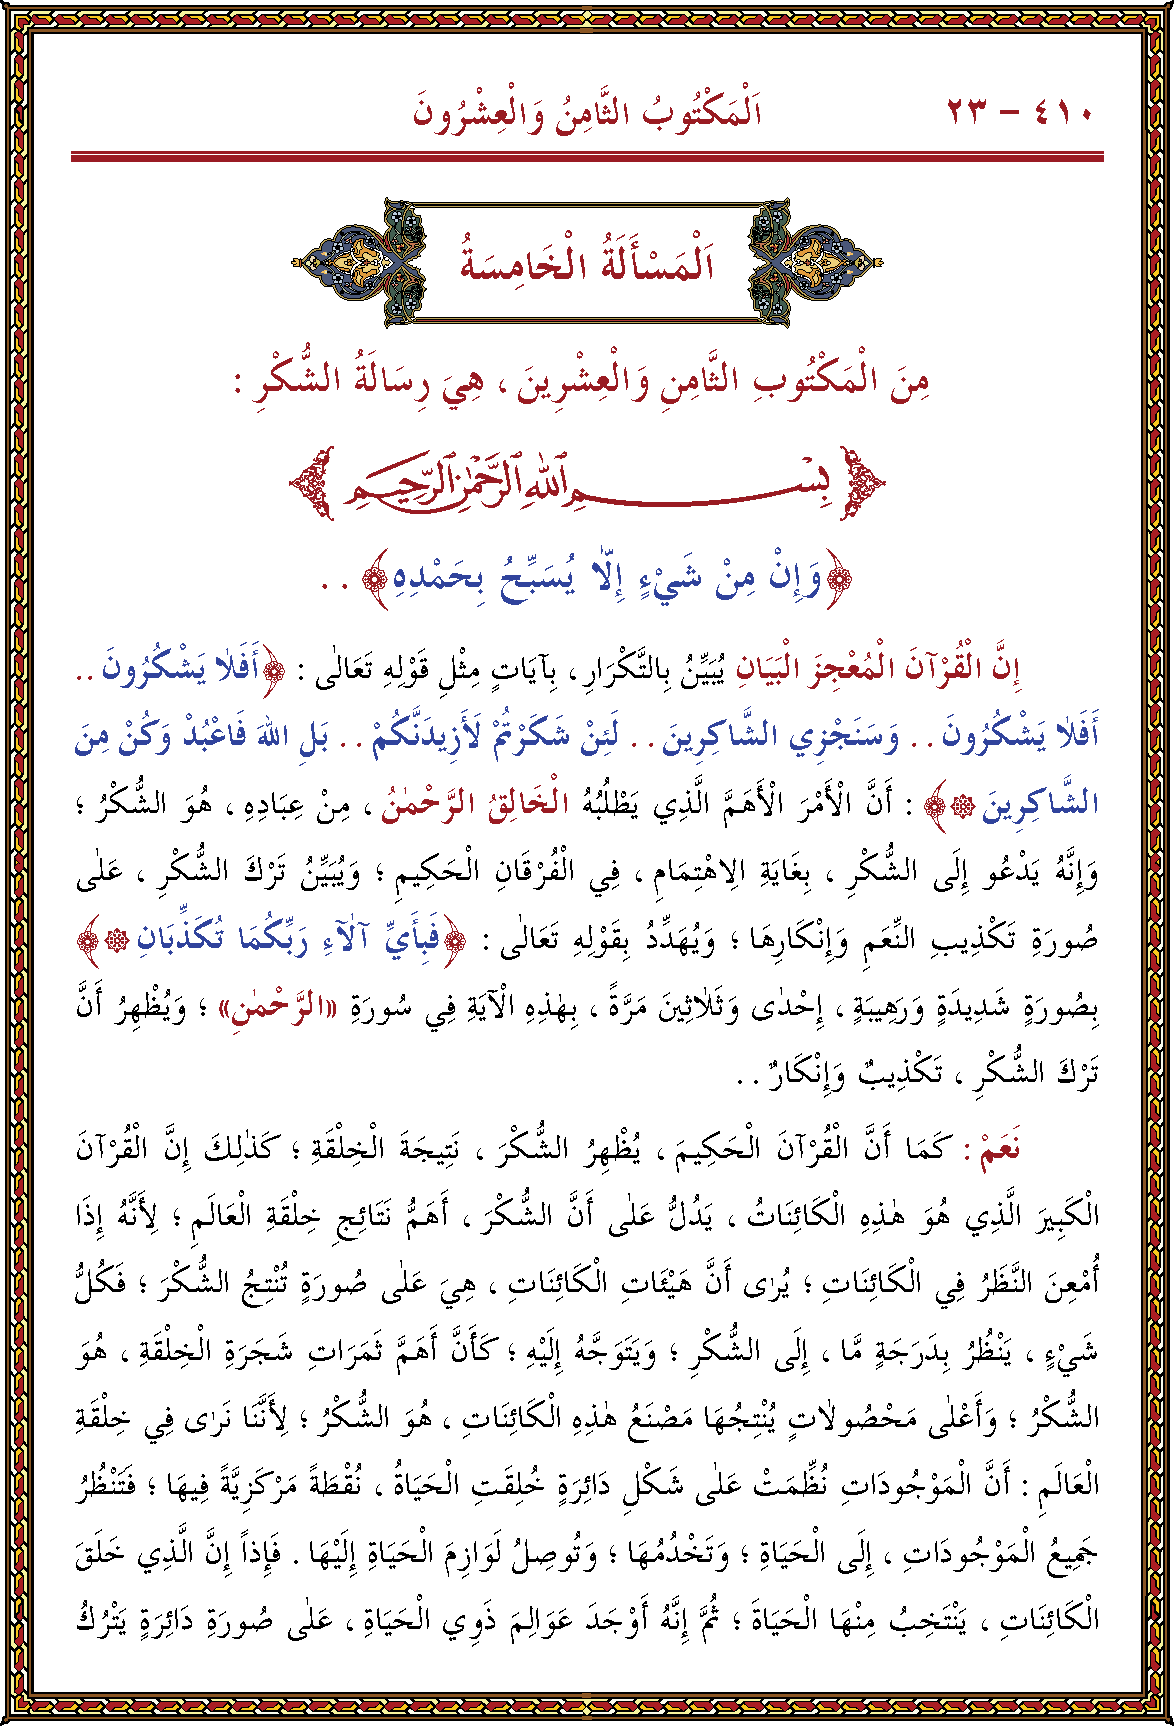 ٤١٠ - ٢٣
اَلْمَكْتُوبُ الثَّامِنُ وَالْعِشْرُونَ
اَلْمَسْأَلَةُ الْخَامِسَةُ
مِنَ الْمَكْتُوبِ الثَّامِنِ وَالْعِشْرِينَ ، هِيَ رِسَالَةُ الشُّكْرِ :
بِسْمِ اللهِ الرَّحْمٰنِ الرَّحِيمِ
﴿وَإِنْ مِنْ شَيْءٍ إِلَّا يُسَبِّحُ بِحَمْدِهِ﴾ . .
إِنَّ الْقُرْآنَ الْمُعْجِزَ الْبَيَانِ يُبَيِّنُ بِالتَّكْرَارِ ، بِآيَاتٍ مِثْلِ قَوْلِهِ تَعَالٰى : ﴿أَفَلَا يَشْكُرُونَ . .
أَفَلَا يَشْكُرُونَ . . وَسَنَجْزِي الشَّاكِرِينَ . . لَئِنْ شَكَرْتُمْ لَأَزِيدَنَّكُمْ . . بَلِ اللهَ فَاعْبُدْ وَكُنْ مِنَ
الشَّاكِرِينَ﴾ : أَنَّ الْأَمْرَ الْأَهَمَّ الَّذِي يَطْلُبُهُ الْخَالِقُ الرَّحْمٰنُ ، مِنْ عِبَادِهِ ، هُوَ الشُّكْرُ ؛
وَإِنَّهُ يَدْعُو إِلَى الشُّكْرِ ، بِغَايَةِ الِاهْتِمَامِ ، فِي الْفُرْقَانِ الْحَكِيمِ ؛ وَيُبَيِّنُ تَرْكَ الشُّكْرِ ، عَلٰى
صُورَةِ تَكْذِيبِ النِّعَمِ وَإِنْكَارِهَا ؛ وَيُهَدِّدُ بِقَوْلِهِ تَعَالٰى : ﴿فَبِأَيِّ آلَاءِ رَبِّكُمَا تُكَذِّبَانِ﴾
بِصُورَةٍ شَدِيدَةٍ وَرَهِيبَةٍ ، إِحْدٰى وَثَلٰاثِينَ مَرَّةً ، بِهٰذِهِ الْآيَةِ فِي سُورَةِ «الرَّحْمٰنِ» ؛ وَيُظْهِرُ أَنَّ
تَرْكَ الشُّكْرِ ، تَكْذِيبٌ وَإِنْكَارٌ . .
نَعَمْ : كَمَا أَنَّ الْقُرْآنَ الْحَكِيمَ ، يُظْهِرُ الشُّكْرَ ، نَتِيجَةَ الْخِلْقَةِ ؛ كَذٰلِكَ إِنَّ الْقُرْآنَ
الْكَبِيرَ الَّذِي هُوَ هٰذِهِ الْكَائِنَاتُ ، يَدُلُّ عَلٰى أَنَّ الشُّكْرَ ، أَهَمُّ نَتَائِجِ خِلْقَةِ الْعَالَمِ ؛ لِأَنَّهُ إِذَا
أُمْعِنَ النَّظَرُ فِي الْكَائِنَاتِ ؛ يُرٰى أَنَّ هَيْئَاتِ الْكَائِنَاتِ ، هِيَ عَلٰى صُورَةٍ تُنْتِجُ الشُّكْرَ ؛ فَكُلُّ
شَيْءٍ ، يَنْظُرُ بِدَرَجَةٍ مَّا ، إِلَى الشُّكْرِ ؛ وَيَتَوَجَّهُ إِلَيْهِ ؛ كَأَنَّ أَهَمَّ ثَمَرَاتِ شَجَرَةِ الْخِلْقَةِ ، هُوَ
الشُّكْرُ ؛ وَأَعْلٰى مَحْصُولَاتٍ يُنْتِجُهَا مَصْنَعُ هٰذِهِ الْكَائِنَاتِ ، هُوَ الشُّكْرُ ؛ لِأَنَّنَا نَرٰى فِي خِلْقَةِ
الْعَالَمِ : أَنَّ الْمَوْجُودَاتِ نُظِّمَتْ عَلٰى شَكْلِ دَائِرَةٍ خُلِقَتِ الْحَيَاةُ ، نُقْطَةً مَرْكَزِيَّةً فِيهَا ؛ فَتَنْظُرُ
جَمِيعُ الْمَوْجُودَاتِ ، إِلَى الْحَيَاةِ ؛ وَتَخْدُمُهَا ؛ وَتُوصِلُ لَوَازِمَ الْحَيَاةِ إِلَيْهَا . فَإِذاً إِنَّ الَّذِي خَلَقَ
الْكَائِنَاتِ ، يَنْتَخِبُ مِنْهَا الْحَيَاةَ ؛ ثُمَّ إِنَّهُ أَوْجَدَ عَوَالِمَ ذَوِي الْحَيَاةِ ، عَلٰى صُورَةِ دَائِرَةٍ يَتْرُكُ